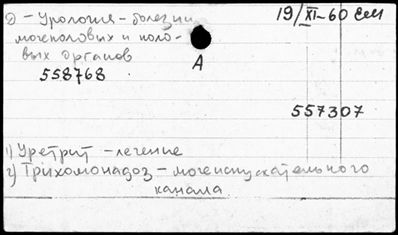 Д - Урология - болезни 19/XI-60 ем
мочеполовых и поло-
вых органов
558768
А
557307
1) Уретрит - лечение
2) Трихомонадоз - мочеиспускательного
канала